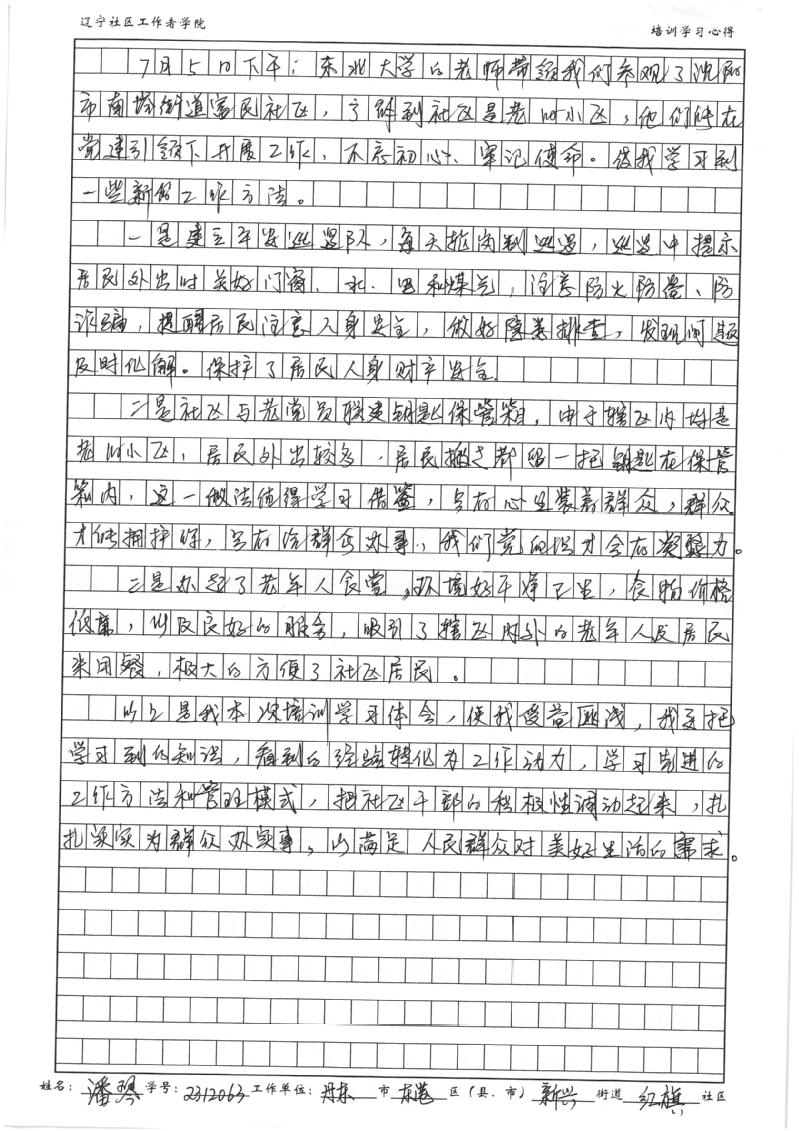 辽宁社区工作者学院
培训学习心得
7月5日下午：东北大学的老师带领我们参观了沈阳
市南塔街道富民社区，了解到社区是老旧小区，他们能在
党建引领下开展工作，不忘初心、牢记使命。使我学习到
一些新的工作方法。
一是建立平安巡逻队，每天轮岗制巡逻，巡逻中提示
居民外出时关好门窗、水、电和煤气，注意防火防盗、防
诈骗，提醒居民注意人身安全，做好隐患排查，发现问题
及时化解。保护了居民人身财产安全.
二是社区与老党员联建钥匙保管箱，由于辖区内均是
老旧小区，居民外出较多，居民都留一把钥匙在保管
箱内，这一做法值得学习借鉴，只有心里装着群众，群众
才能拥护你，只有给群众办事，我们党组织才会有凝聚力。
三是办起了老年人食堂，环境好干净卫生，食物价格
低廉，以及良好的服务，吸引了辖区内外的老年人及居民
来用餐，极大的方便了社区居民。
以上是我本次培训学习体会，使我受益匪浅，我要把
学习到的知识，看到的经验转化为工作动力，学习先进的
工作方法和管理模式，把社区干部的积极性调动起来，扎
扎实实为群众办实事，以满足人民群众对美好生活的需求。
姓名：潘琴 学号：2312063 工作单位：丹东 市 东港 区（县、市） 新兴 街道 红旗 社区